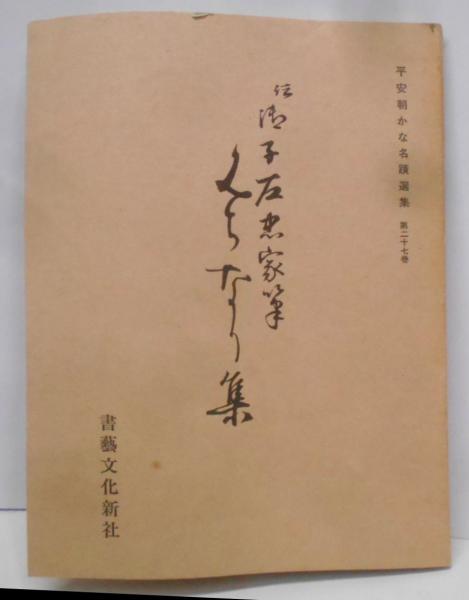 平安朝かな名蹟選集 第二十七巻
伝御子左忠家筆
なり集
書藝文化新社